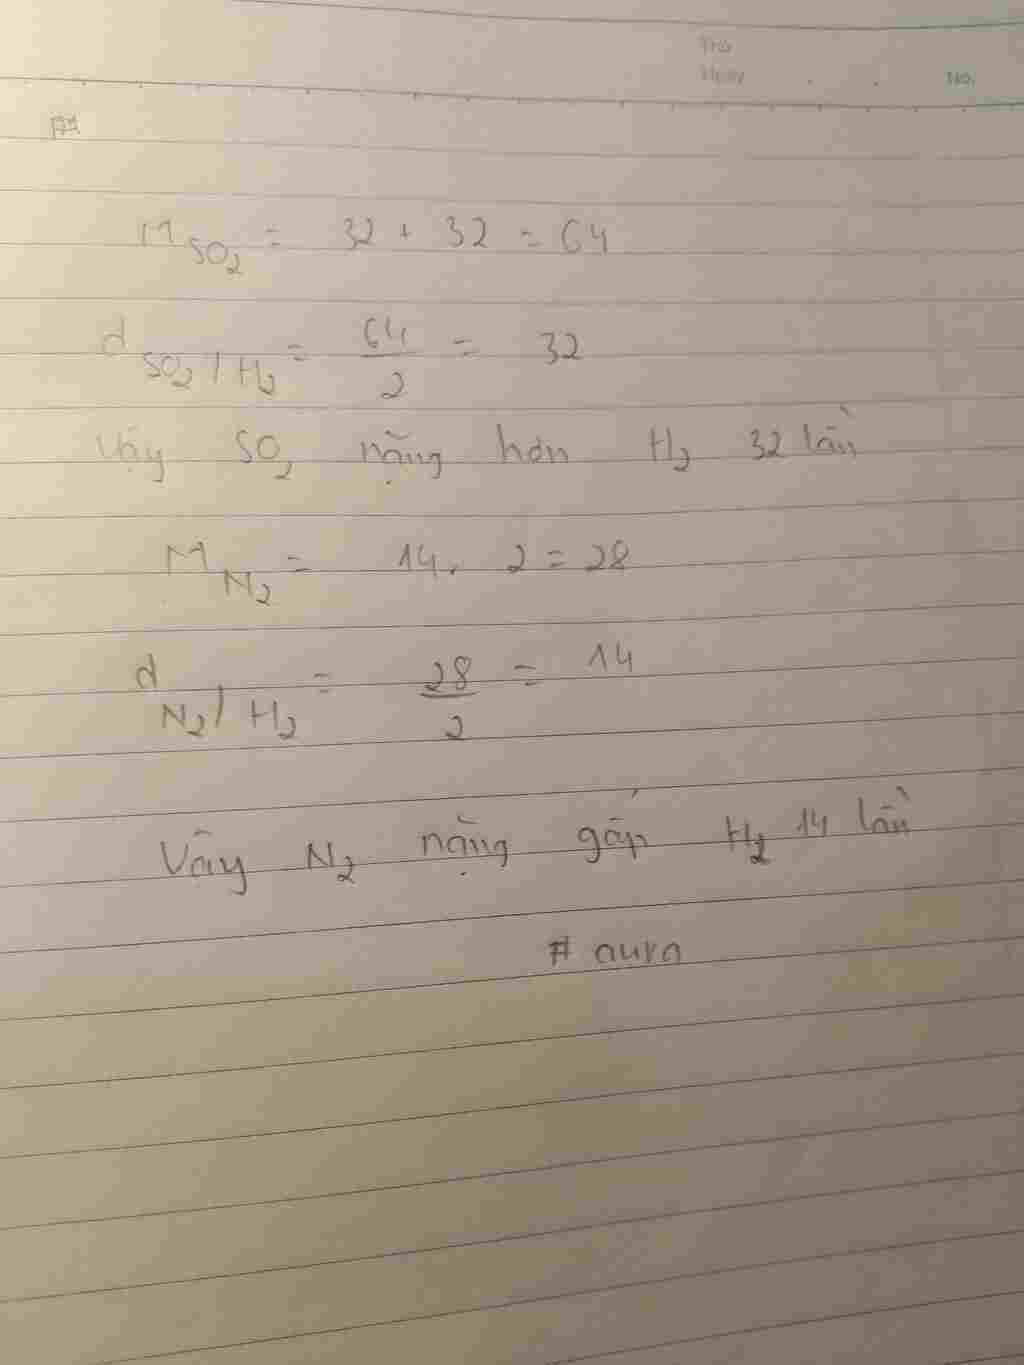 Thứ
Ngày . . No.
M SO₂ = 32 + 32 = 64
d SO₂ / H₂ = 64/2 = 32
Vậy SO₂ nặng hơn H₂ 32 lần
M N₂ = 14 . 2 = 28
d N₂ / H₂ = 28/2 = 14
Vây N₂ nặng gấp H₂ 14 lần
# aura